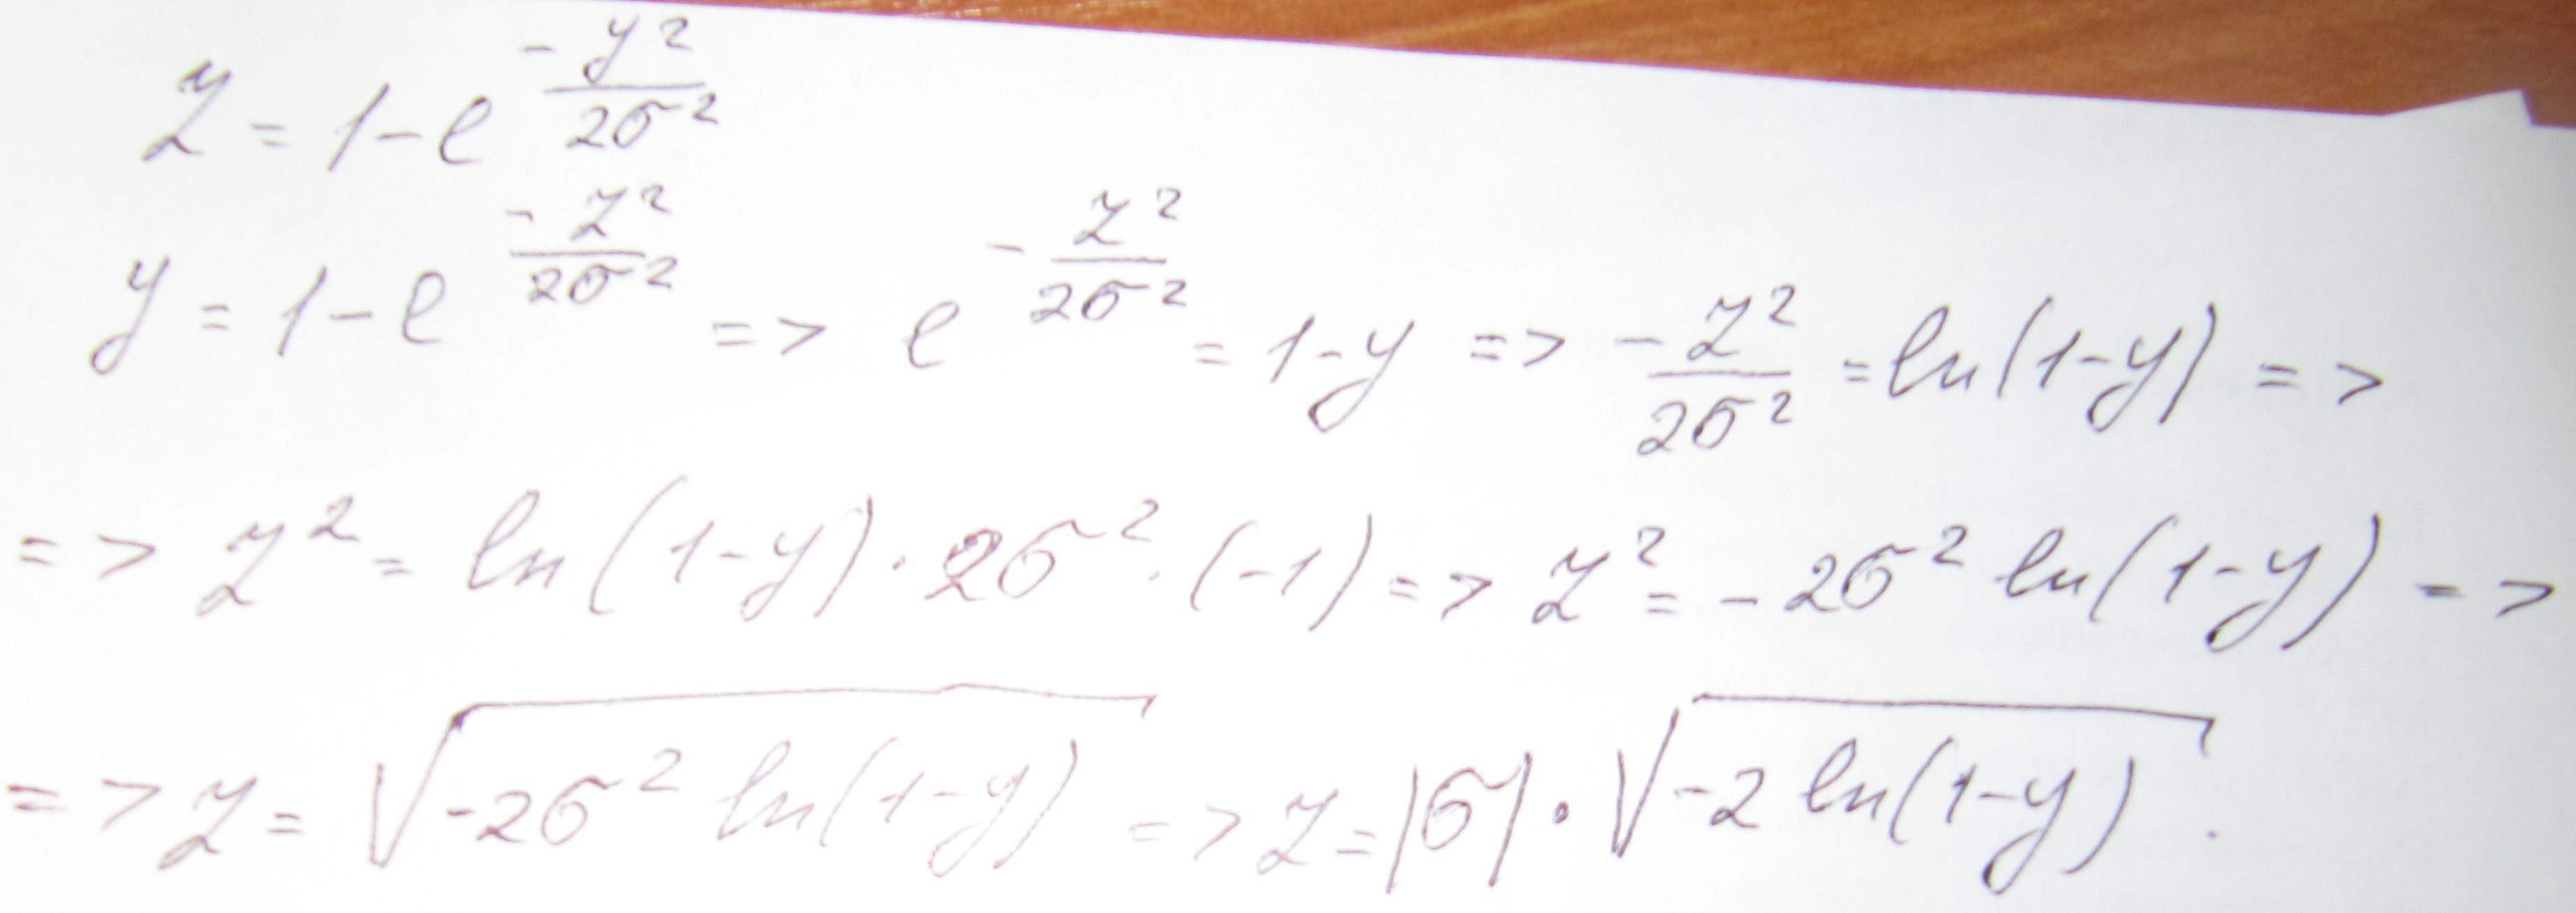 z = 1 - e^(-y²/2σ²)
y = 1 - e^(-z²/2σ²) => e^(-z²/2σ²) = 1 - y => -z²/2σ² = ln(1-y) =>
=> z² = ln(1-y) · 2σ² · (-1) => z² = -2σ² ln(1-y) =>
=> z = √(-2σ² ln(1-y)) => z = |σ| · √(-2 ln(1-y)).